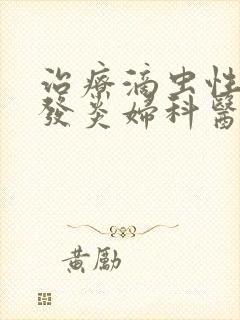 治療滴虫性
發炎婦科醫
黄勵